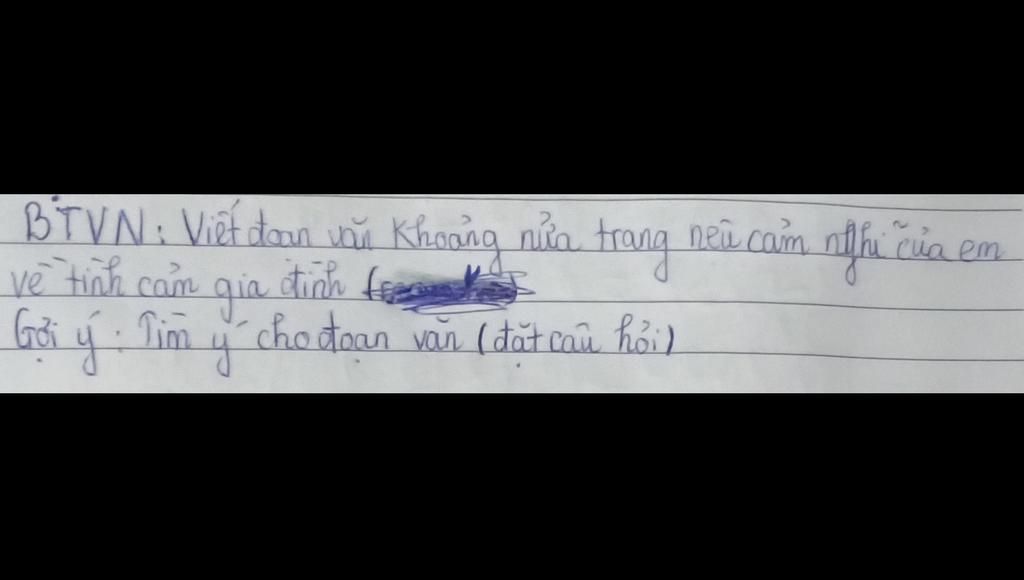 BTVN: Viết đoạn văn khoảng nửa trang nêu cảm nghĩ của em
về tình cảm gia đình (
Gợi ý: Tìm ý cho đoạn văn (đặt câu hỏi)